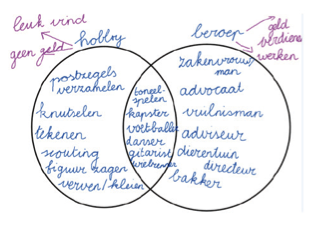 leuk vind
geen geld
hobby
beroep
geld
verdienen
werken
postzegels
verzamelen
knutselen
tekenen
scouting
figuur zagen
verven/kleien
toneel-
spelen
kapster
voetballer
danser
gitarist
zakenvrouw/
man
advocaat
vuilnisman
adviseur
dierentuin
directeur
bakker